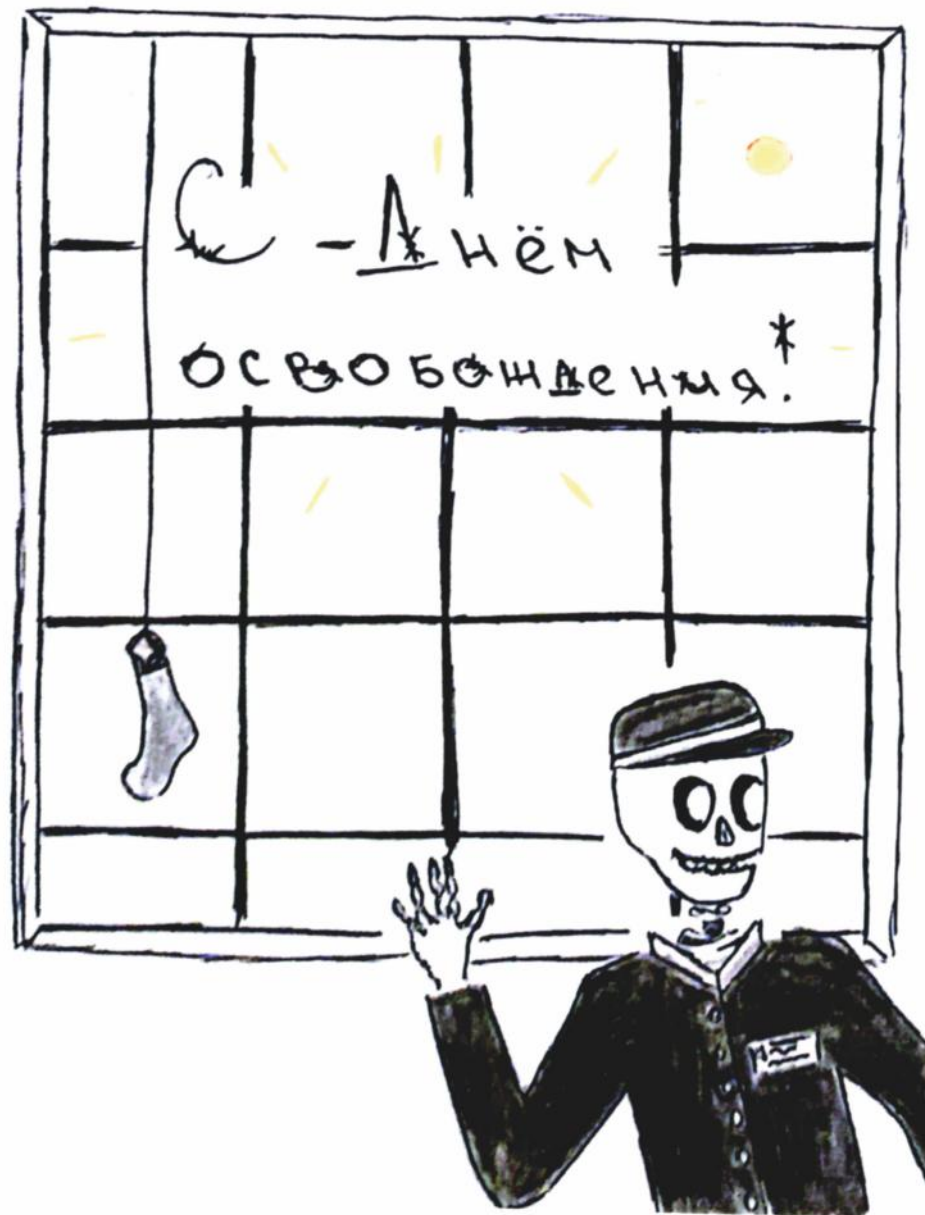 С - Днём
освобождения!*